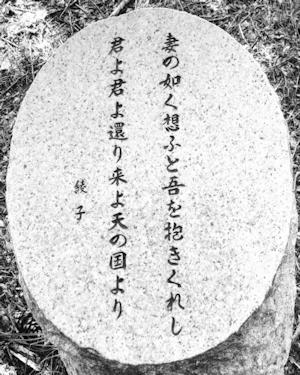 妻の如く想ふと吾を抱きくれし
君よ君よ還り来よ天の国より
綾子